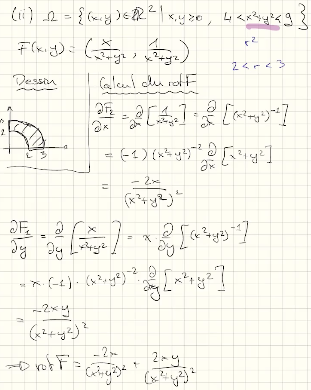 (ii) Ω = {(x,y) ∈ ℝ² | x,y > 0, 4 < x²+y² < 9}
r²
F(x,y) = (x/(x²+y²), 1/(x²+y²))
2 < r < 3
Dessin
Calcul du rot F
∂F₂/∂x = ∂/∂x [1/(x²+y²)] = ∂/∂x [(x²+y²)⁻¹]
= (-1)(x²+y²)⁻² ∂/∂x [x²+y²]
2 2 3
= -2x/(x²+y²)²
∂F₁/∂y = ∂/∂y [x/(x²+y²)] = x ∂/∂y [(x²+y²)⁻¹]
= x·(-1)·(x²+y²)⁻² · ∂/∂y [x²+y²]
= -2xy/(x²+y²)²
⇒ rot F = -2x/(x²+y²)² + 2xy/(x²+y²)²